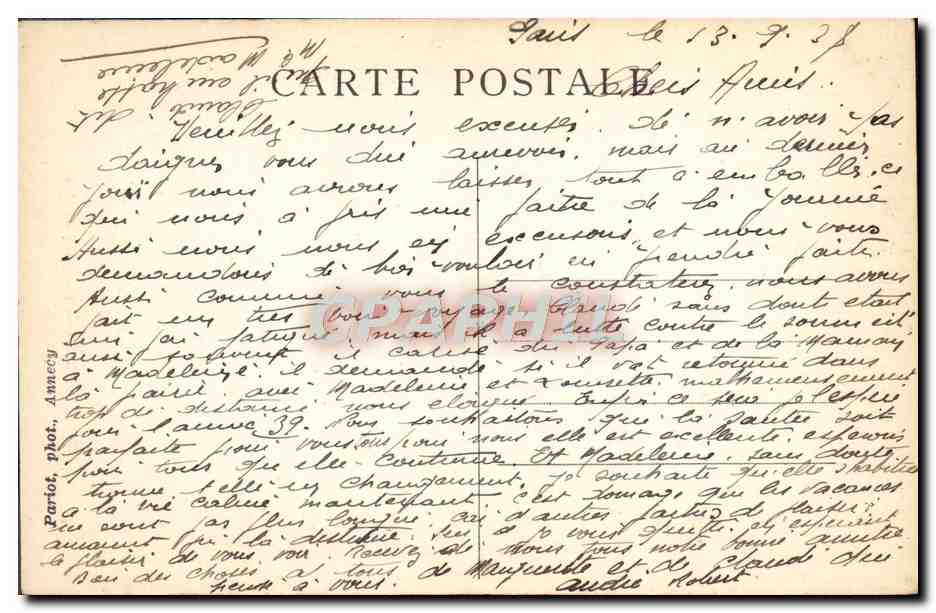 Paris le 13.9.38
CARTE POSTALE
Chers Amis.
Veuillez nous excuser de n'avoir pas
daigner vous dire aurevoir. mais au dernier
jour nous avons laisser tout à emballer. ce
qui nous à pris une partie de là journée
Aussi nous nous en excusons et nous vous
demandons de bien vouloir en prendre faite.
Aussi comme vous le constaterez nous avons
fait un très bon voyage. Claude sans doute était
un peu fatigué, mais il à lutté contre le sommeil,
aussi souvent il cause du Papa et de la Maman
à Madeleine, il demande si il vat retourné dans
là avec Madeleine et Lousette. malheureusement
trop de distance nous eloigne. Enfin ce sera j'espère
pour l'année 39. Nous souhaitons que là santé soit
parfaite pour vous tous pour nous elle est excellente esperons
pour tous que elle continue. Et Madeleine sans doute
trouve t'elle un changement, je souhaite qu'elle s'habitue
à la vie calme maintenant c'est domage que les vacances
ne sont pas plus longue, car d'autres parties de plaisir
là distance. Sur ce je vous quitte en esperant
le plaisir de vous voir. Recevez de nous tous notre bonne amitié
Bien des choses à tous de Marguerite et de Claude
à vous. André Robert
Claude dit
Mme Madeleine
Pariot, phot., Annecy
CPAPHIL